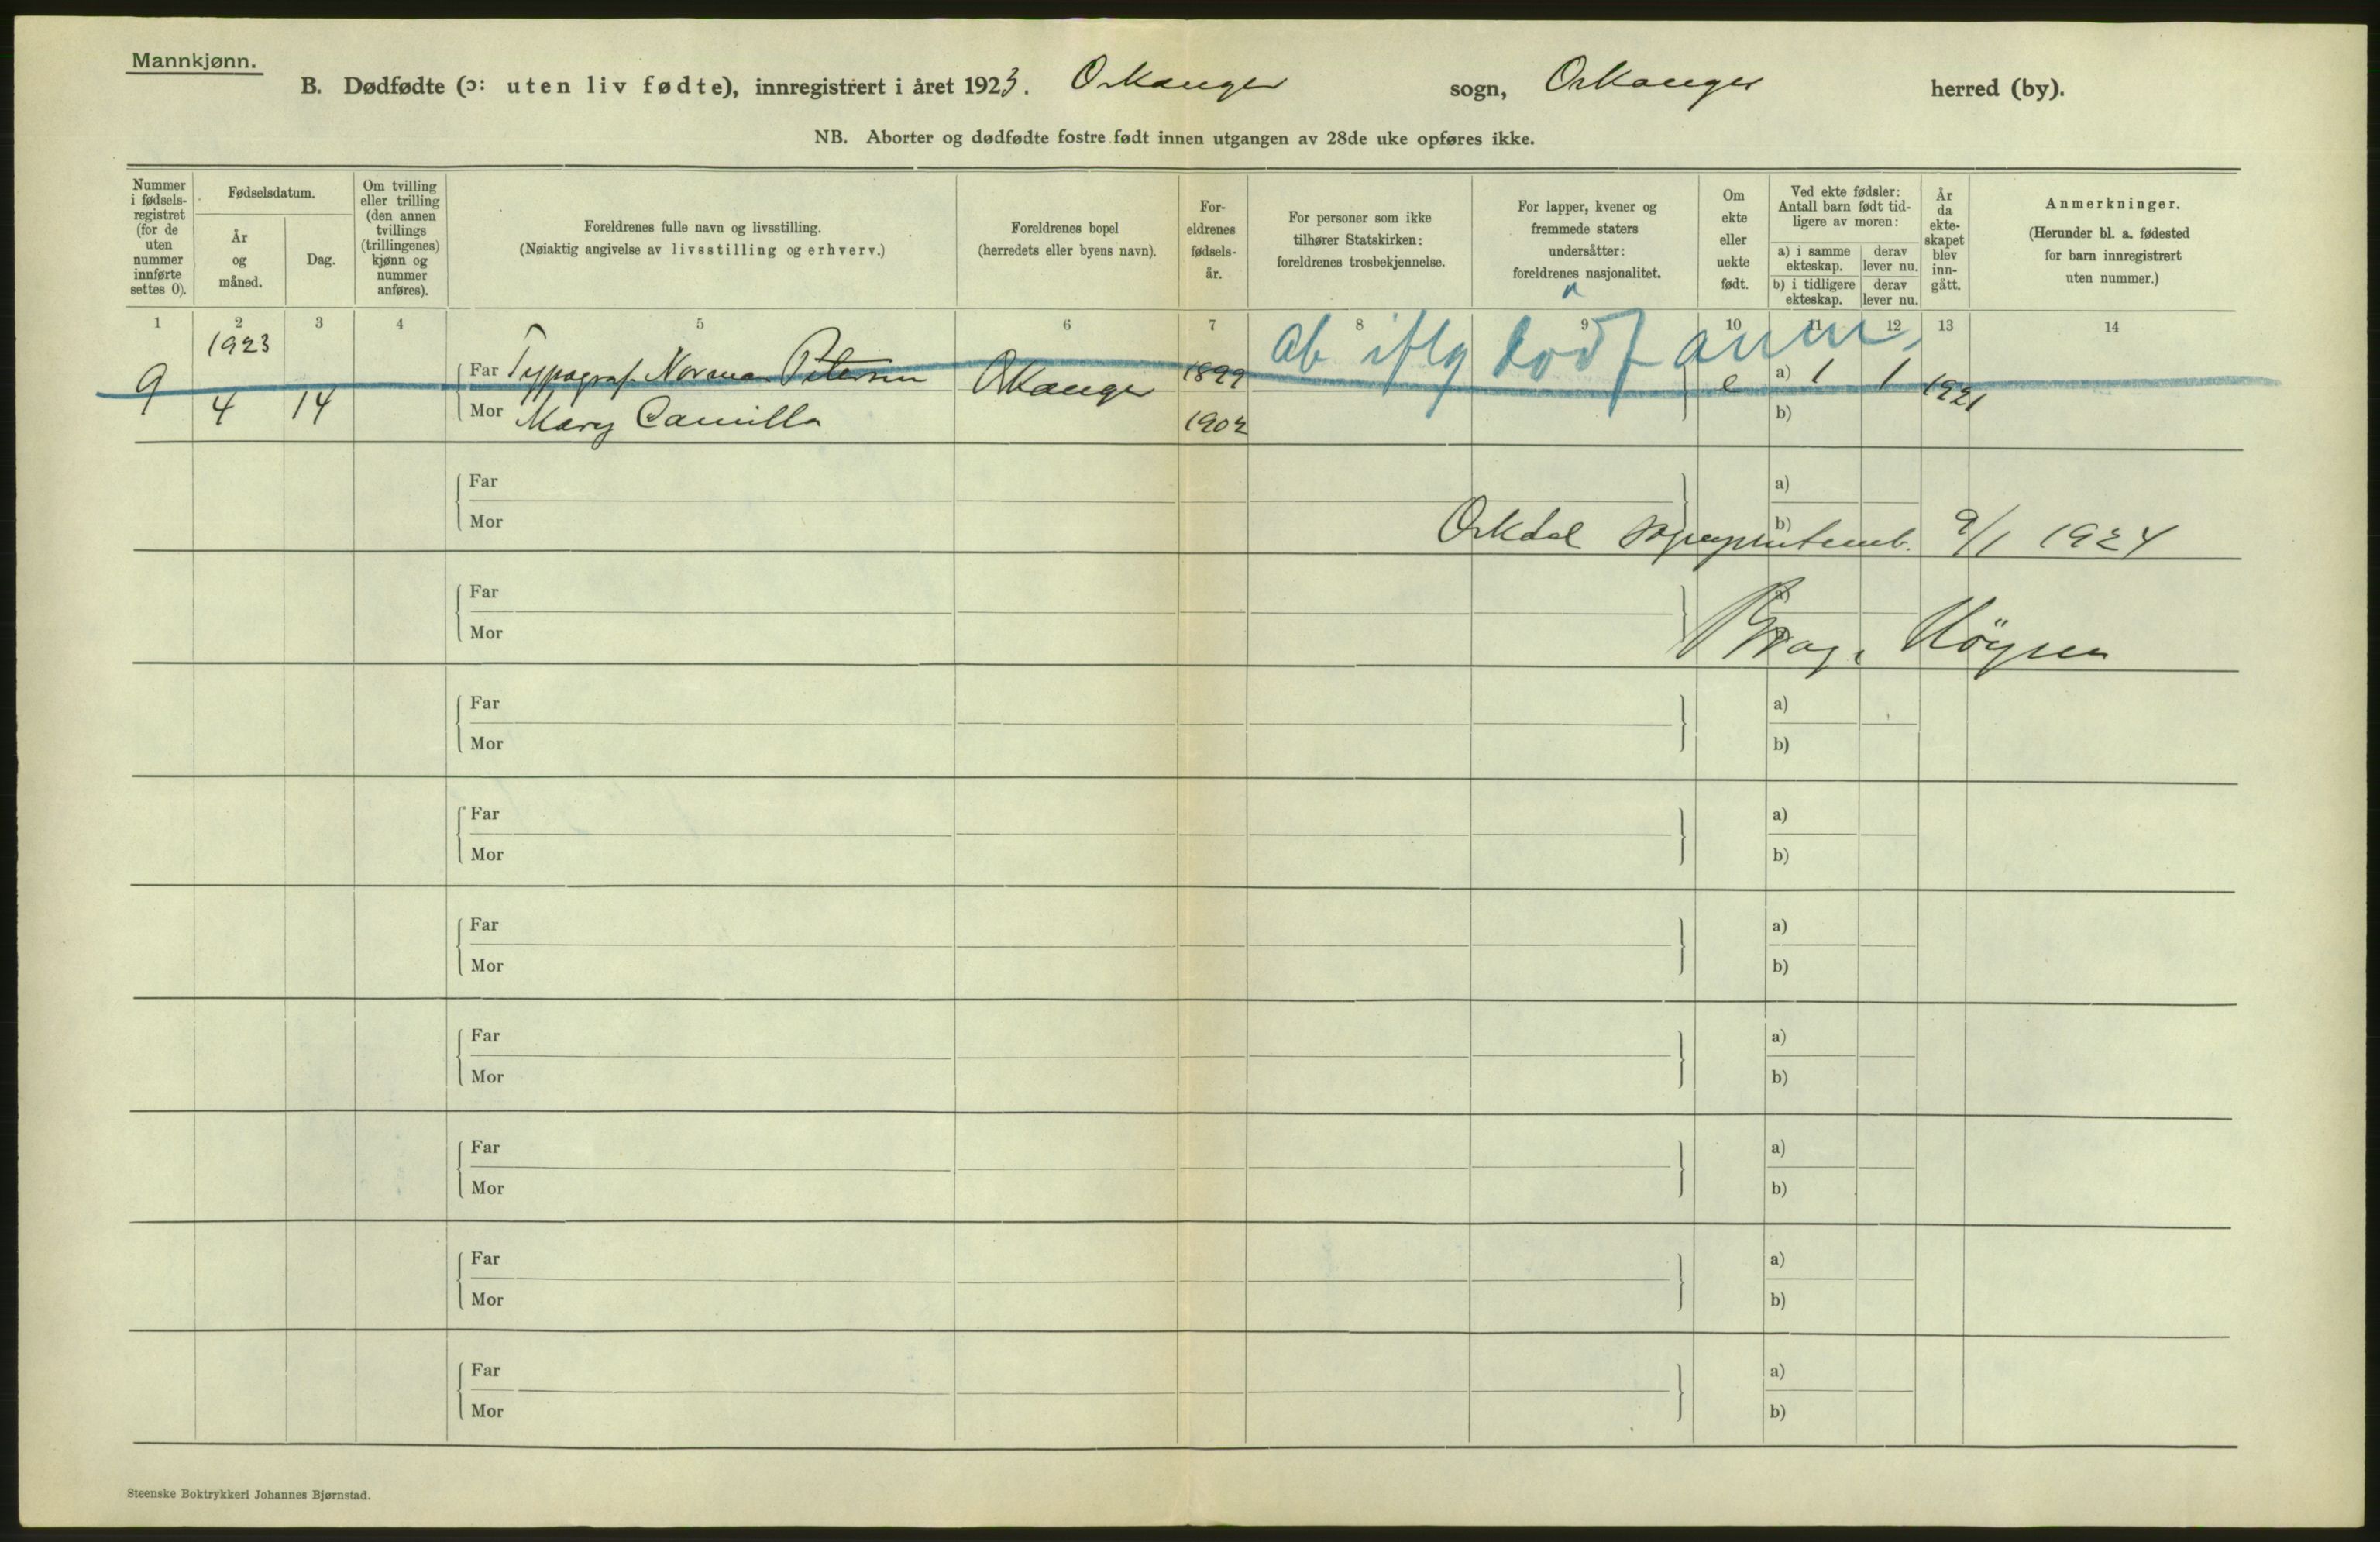 Mannkjønn.
B. Dødfødte (ɔ: uten liv fødte), innregistrert i året 1923. Orkanger sogn, Orkanger herred (by).
NB. Aborter og dødfødte fostre født innen utgangen av 28de uke opføres ikke.
Nummer i fødsels- registret (for de uten nummer innførte settes 0).
Fødselsdatum.
År og måned.
Dag.
Om tvilling eller trilling (den annen tvillings (trillingenes) kjønn og nummer anføres).
Foreldrenes fulle navn og livsstilling.
(Nøiaktig angivelse av livsstilling og erhverv.)
Foreldrenes bopel
(herredets eller byens navn).
For- eldrenes fødsels- år.
For personer som ikke tilhører Statskirken: foreldrenes trosbekjennelse.
For lapper, kvener og fremmede staters undersåtter: foreldrenes nasjonalitet.
Om ekte eller uekte født.
Ved ekte fødsler: Antall barn født tid- ligere av moren:
a) i samme ekteskap. derav lever nu.
b) i tidligere ekteskap. derav lever nu.
År da ekte- skapet blev inn- gått.
Anmerkninger.
(Herunder bl. a. fødested for barn innregistrert uten nummer.)
1 2 3 4 5 6 7 8 9 10 11 12 13 14
1923
ab iflg dødf anm.
9 4 14 Far Typograf. Norman Petersen Orkanger 1899 e a) 1 1 1921
Mor Mary Camilla 1902 b)
Far a)
Mor b)
Orkdal 9/1 1924
Far a)
Mor
Far a)
Mor b)
Far a)
Mor b)
Far a)
Mor b)
Far a)
Mor b)
Far a)
Mor b)
Far a)
Mor b)
Far a)
Mor b)
Steenske Boktrykkeri Johannes Bjørnstad.